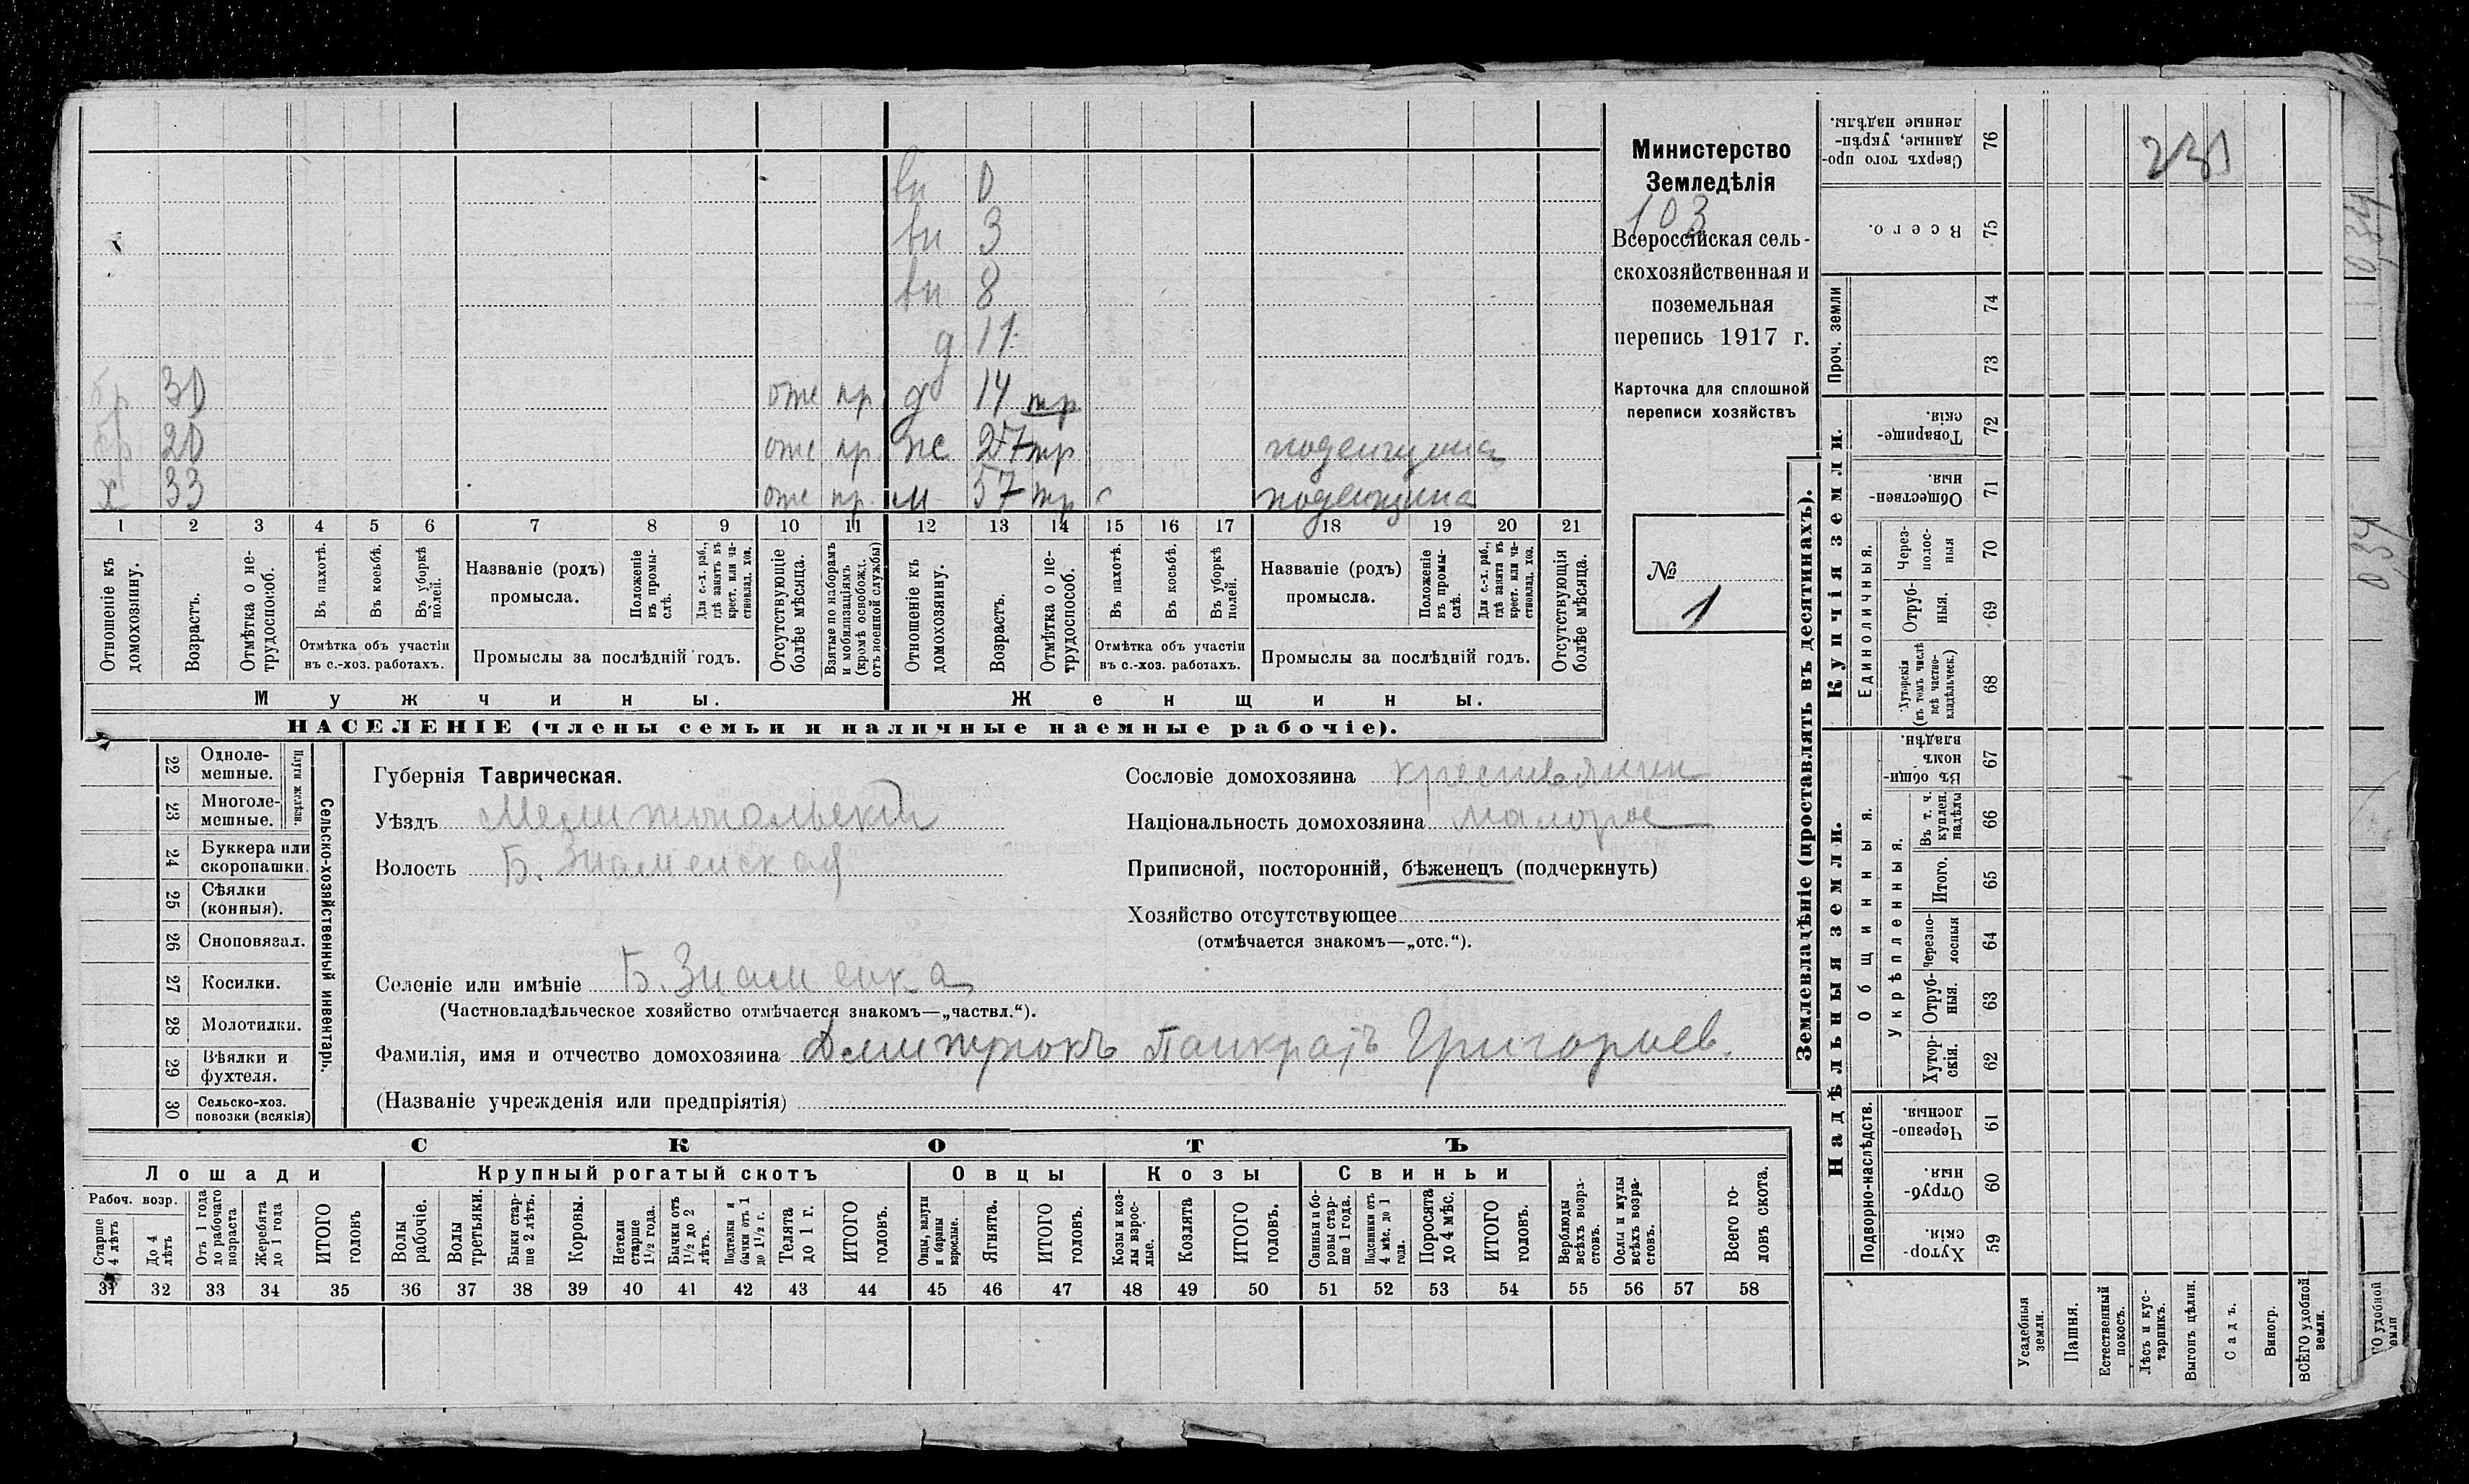 вн 0
вн 3
вн 8
д 11
бр 30 отс пр д 14 тр
бр 20 отс пр же 27 тр поденщина
х 33 отс пр м 57 тр поденщина
1 2 3 4 5 6 7 8 9 10 11 12 13 14 15 16 17 18 19 20 21
Отношеніе къ домохозяину.
Возрастъ.
Отмѣтка о не-трудоспособ.
Въ пахотѣ.
Въ косьбѣ.
Въ уборкѣ полей.
Отмѣтка объ участіи
въ с.-хоз. работахъ.
Названіе (родъ)
промысла.
Положеніе въ промы-слѣ.
Для с.-х. раб., гдѣ занятъ въ крест. или ча-стновлад. хоз.
Промыслы за послѣдній годъ.
Отсутствующіе болѣе мѣсяца.
Взятые по наборамъ и мобилизаціямъ (кромѣ освобожд. отъ военной службы)
Отношеніе къ домохозяину.
Возрастъ.
Отмѣтка о не-трудоспособ.
Въ пахотѣ.
Въ косьбѣ.
Въ уборкѣ полей.
Отмѣтка объ участіи
въ с.-хоз. работахъ.
Названіе (родъ)
промысла.
Положеніе въ промы-слѣ.
Для с.-х. раб., гдѣ занята въ крест. или ча-стновлад. хоз.
Промыслы за послѣдній годъ.
Отсутствующія болѣе мѣсяца.
Мужчины.
Женщины.
НАСЕЛЕНІЕ (члены семьи и наличные наемные рабочіе).
Министерство
Земледѣлія
103
Всероссійская сель-
скохозяйственная и
поземельная
перепись 1917 г.
Карточка для сплошной
переписи хозяйствъ
№
1
22 Одноле-
мешные.
23 Многоле-
мешные.
Плуги желѣзн.
24 Буккера или
скоропашки.
25 Сѣялки
(конныя).
26 Сноповязал.
27 Косилки.
28 Молотилки.
29 Вѣялки и
фухтеля.
30 Сельско-хоз.
повозки (всякія)
Сельско-хозяйственный инвентарь.
Губернія Таврическая.
Уѣздъ Мелитопольскій
Волость Б. Знаменская
Сословіе домохозяина крестьянин
Національность домохозяина малорос
Приписной, посторонній, бѣженецъ (подчеркнуть)
Хозяйство отсутствующее
(отмѣчается знакомъ—„отс.“).
Селеніе или имѣніе Б. Знаменка
(Частновладѣльческое хозяйство отмѣчается знакомъ—„частвл.“).
Фамилія, имя и отчество домохозяина Дмитрюкъ Панкратъ Григорьев.
(Названіе учрежденія или предпріятія)
СКОТЪ
Лошади
Крупный рогатый скотъ
Овцы
Козы
Свиньи
Рабоч. возр.
Старше 4 лѣтъ
До 4 лѣтъ
Отъ 1 года до рабочаго возраста
Жеребята до 1 года
ИТОГО головъ
Волы рабочіе.
Волы третьяки.
Быки стар-ше 2 лѣтъ.
Коровы.
Нетели старше 1½ года.
Бычки отъ 1½ до 2 лѣтъ.
Подтелки и бычки отъ 1 до 1½ г.
Телята до 1 г.
ИТОГО головъ.
Овцы, валухи и бараны взрослые.
Ягнята.
ИТОГО головъ.
Козы и коз-лы взрос-лые.
Козлята
ИТОГО головъ.
Свиньи и бо-ровы стар-ше 1 года.
Подсвинки отъ 4 мѣс. до 1 года.
Поросята до 4 мѣс.
ИТОГО головъ.
Верблюды всѣхъ возра-стовъ.
Ослы и мулы всѣхъ возра-стовъ.
Всего го-ловъ скота.
31 32 33 34 35 36 37 38 39 40 41 42 43 44 45 46 47 48 49 50 51 52 53 54 55 56 57 58
Землевладѣніе (проставлять въ десятинахъ).
Надѣльныя земли.
Купчія земли.
Проч. земли
Подворно-наслѣдств.
Общинныя.
Укрѣпленныя.
Единоличныя.
Сверхъ того про-данные, укрѣп-ленные надѣлы. 76
231
Всего. 75
74
73
Товарище-скія. 72
Обществен-ныя. 71
Через-полос-ныя 70
Отруб-ныя. 69
Хуторскія (въ томъ числѣ всѣ частно-владѣльческ.) 68
Въ общи-номъ владѣн. 67
Въ т. ч. куплен. надѣлы 66
Итого. 65
Черезпо-лосныя 64
Отруб-ныя. 63
Хутор-скія. 62
Черезпо-лосныя. 61
Отруб-ныя. 60
Хутор-скія. 59
Усадебныя земли.
Пашня.
Естественный покосъ.
Лѣсъ и кус-тарникъ.
Выгонъ цѣлин.
Садъ.
Виногр.
ВСЕГО удобной земли.
034
034
ГО удобной
емли